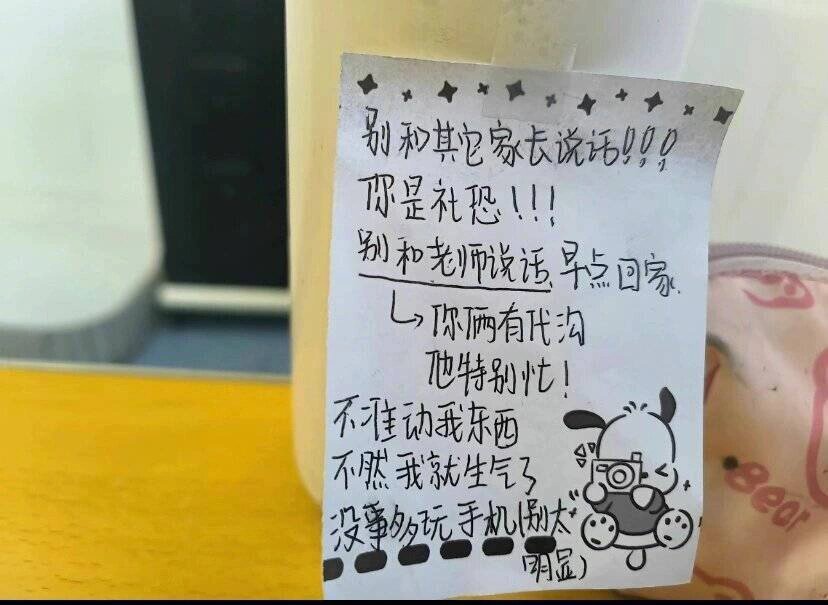 别和其它家长说话!!!
你是社恐!!!
别和老师说话,早点回家.
你俩有代沟
他特别忙!
不准动我东西
不然我就生气了
没事多玩手机(别太
明显)
Bear